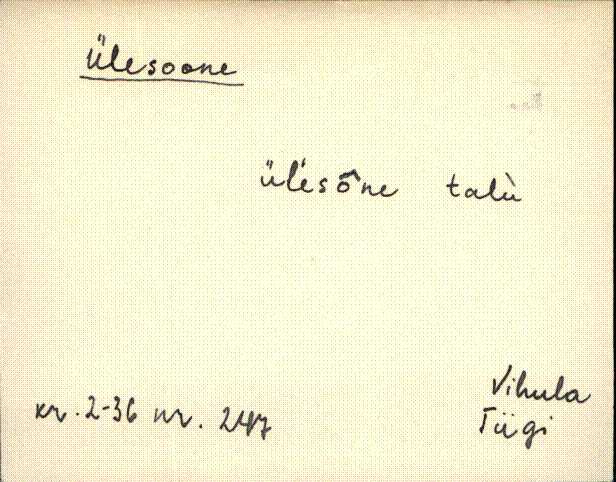 Ülesoone
üĺesône talù
kr. 2-36 nr. 247
Vihula
Tiigi